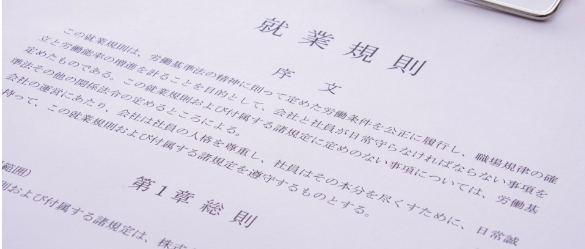 就業規則
序文
この就業規則は、労働基準法の精神に則って定めた労働条件を公正に履行し、職場規律の確
立と労働能率の増進を計ることを目的として、会社と社員が日常守らなければならない事項を
定めたものである。この就業規則および付属する諸規定に定めのない事項については、労働基
準法その他の関係法令の定めるところによる。
会社の運営にあたり、会社は社員の人格を尊重し、社員はその本分を尽くすために、日常誠
持って、この就業規則および付属する諸規定を遵守するものとする。
第1章総則
範囲)
則および付属する諸規定は、株式